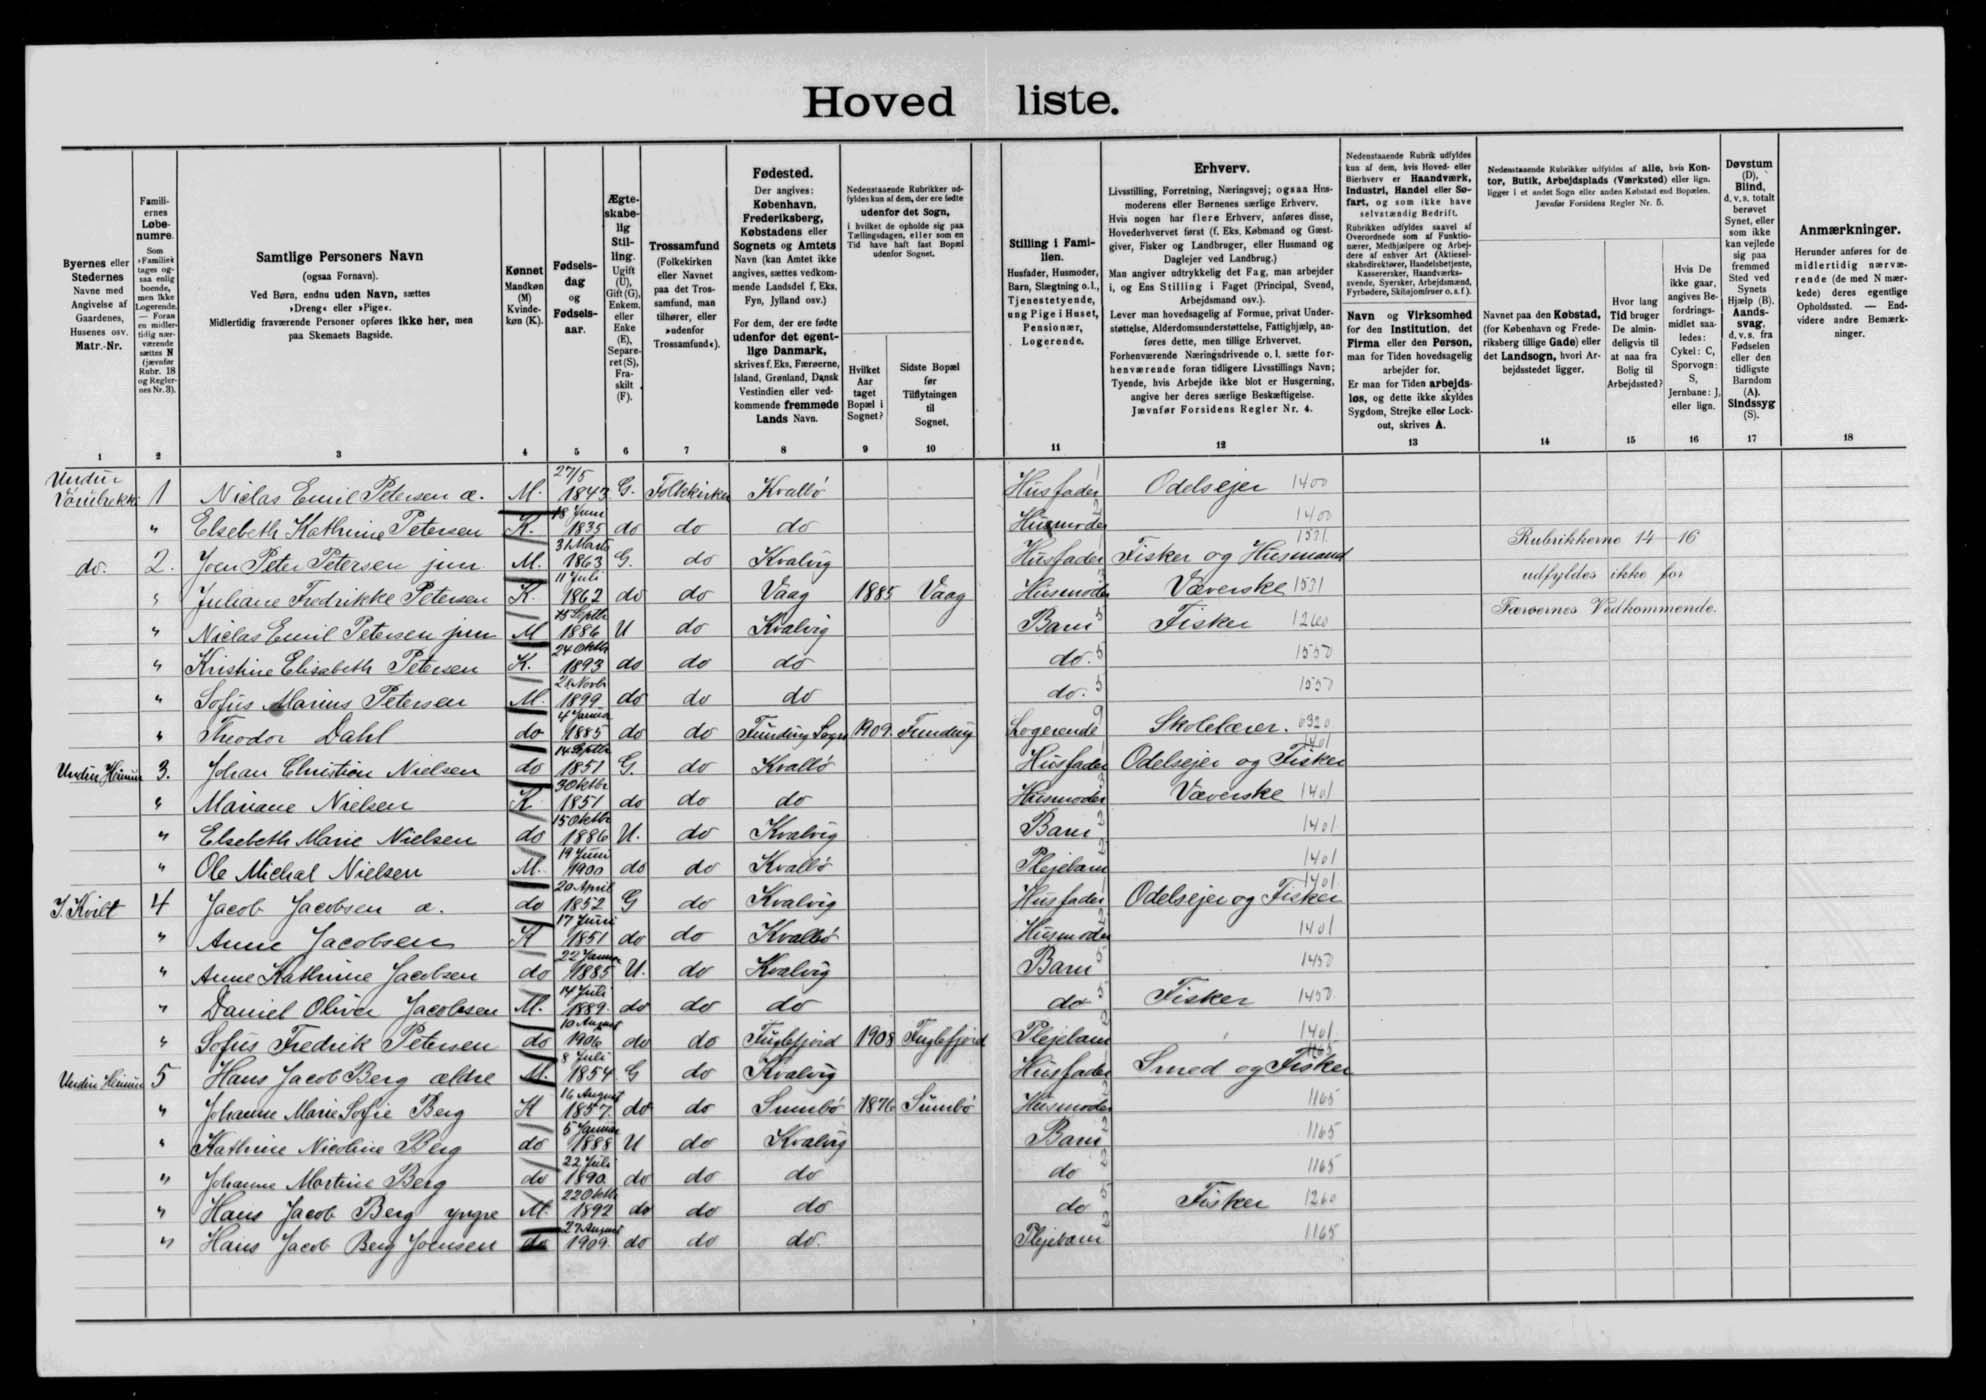 Hoved liste.
Byernes eller Stedernes Navne med Angivelse af Gaardenes, Husenes osv. Matr.-Nr.
Famili-ernes Løbe-numre.
Som »Familie« tages og-saa enlig boende, men ikke Logerende. — Foran en midler-tidig nær-værende sættes N (jævnfør Rubr. 18 og Regler-nes Nr. 3).
Samtlige Personers Navn
(ogsaa Fornavn).
Ved Børn, endnu uden Navn, sættes
»Dreng« eller »Pige«.
Midlertidig fraværende Personer opføres ikke her, men
paa Skemaets Bagside.
Kønnet Mandkøn (M) Kvinde-køn (K).
Fødsels-dag og Fødsels-aar.
Ægte-skabe-lig Stil-ling. Ugift (U), Gift (G), Enkem. eller Enke (E), Separe-ret (S), Fra-skilt (F).
Trossamfund (Folkekirken eller Navnet paa det Tros-samfund, man tilhører, eller »udenfor Trossamfund«).
Fødested.
Der angives: København, Frederiksberg, Købstadens eller Sognets og Amtets Navn (kan Amtet ikke angives, sættes vedkom-mende Landsdel f. Eks. Fyn, Jylland osv.)
For dem, der ere fødte udenfor det egent-lige Danmark, skrives f. Eks. Færøerne, Island, Grønland, Dansk Vestindien eller ved-kommende fremmede Lands Navn.
Nedenstaaende Rubrikker ud-fyldes kun af dem, der ere fødte udenfor det Sogn, i hvilket de opholde sig paa Tællingsdagen, eller som en Tid have haft fast Bopæl udenfor Sognet.
Hvilket Aar taget Bopæl i Sognet?
Sidste Bopæl før Tilflytningen til Sognet.
Stilling i Fami-lien.
Husfader, Husmoder, Barn, Slægtning o. l., Tjenestetyende, ung Pige i Huset, Pensionær, Logerende.
Erhverv.
Livsstilling, Forretning, Næringsvej; ogsaa Hus-moderens eller Børnenes særlige Erhverv.
Hvis nogen har flere Erhverv, anføres disse, Hovederhvervet først (f. Eks. Købmand og Gæst-giver, Fisker og Landbruger, eller Husmand og Daglejer ved Landbrug.)
Man angiver udtrykkelig det Fag, man arbejder i, og Ens Stilling i Faget (Principal, Svend, Arbejdsmand osv.).
Lever man hovedsagelig af Formue, privat Under-støttelse, Alderdomsunderstøttelse, Fattighjælp, an-føres dette, men tillige Erhvervet.
Forhenværende Næringsdrivende o. l. sætte for-henværende foran tidligere Livsstillings Navn; Tyende, hvis Arbejde ikke blot er Husgerning, angive her deres særlige Beskæftigelse.
Jævnfør Forsidens Regler Nr. 4.
Nedenstaaende Rubrik udfyldes kun af dem, hvis Hoved- eller Bierhverv er Haandværk, Industri, Handel eller Sø-fart, og som ikke have selvstændig Bedrift.
Rubrikken udfyldes saavel af Overordnede som af Funktio-nærer, Medhjælpere og Arbej-dere af enhver Art (Aktiesel-skabsdirektører, Handelsbetjente, Kasserersker, Haandværks-svende, Syersker, Arbejdsmænd, Fyrbødere, Skibsjomfruer o. s. f.).
Navn og Virksomhed for den Institution, det Firma eller den Person, man for Tiden hovedsagelig arbejder for.
Er man for Tiden arbejds-løs, og dette ikke skyldes Sygdom, Strejke eller Lock-out, skrives A.
Nedenstaaende Rubrikker udfyldes af alle, hvis Kon-tor, Butik, Arbejdsplads (Værksted) eller lign. ligger i et andet Sogn eller anden Købstad end Bopælen.
Jævnfør Forsidens Regler Nr. 5.
Navnet paa den Købstad, (for København og Frede-riksberg tillige Gade) eller det Landsogn, hvori Ar-bejdsstedet ligger.
Hvor lang Tid bruger De almin-deligvis til at naa fra Bolig til Arbejdssted?
Hvis De ikke gaar, angives Be-fordrings-midlet saa-ledes: Cykel: C, Sporvogn: S, Jernbane: J, eller lign.
Døvstum (D), Blind, d. v. s. totalt berøvet Synet, eller som ikke kan vejlede sig paa fremmed Sted ved Synets Hjælp (B). Aands-svag, d. v. s. fra Fødselen eller den tidligste Barndom (A). Sindssyg (S).
Anmærkninger.
Herunder anføres for de midlertidig nærvæ-rende (de med N mær-kede) deres egentlige Opholdssted. — End-videre andre Bemærk-ninger.
1 2 3 4 5 6 7 8 9 10 11 12 13 14 15 16 17 18
Undir 1 Niclas Emil Petersen æ. M. 27/5 1843 G. Folkekirken Kvalbö Husfader 1 Odelsejer 1400
" Elsebeth Kathrine Petersen K. 18 Juni 1835 do do do Husmoder 2 1400
do. 2. Joen Peter Petersen jun. M. 31 Marts 1863 G. do Kvalvig Husfader 1 Fisker og Husmand 1531
" Juliane Fredrikke Petersen K. 11 Juli 1862 do do Vaag 1885 Vaag Husmoder 3 Væverske 1531
" Niclas Emil Petersen jun M 15 Septbr 1886 U do Kvalvig Barn 5 Fisker 1260
" Kristine Elisabeth Petersen K. 24 Oktbr 1893 do do do do. 5 1550
" Sofus Marius Petersen M. 21 Novbr 1899 do do do do. 5 1550
" Theodor Dahl do 4 Januar 1885 do do Funding Sogn 1909. Funding Logerende 9 Skolelærer. 6320
Undir Heimur 3. Johan Christian Nielsen do 14 Septbr 1851 G. do Kvalbö Husfader 1 Odelsejer og Fisker 1401
" Mariane Nielsen K 3 Oktbr 1851 do do do Husmoder 3 Væverske 1401
" Elsebeth Marie Nielsen do 15 Oktbr 1886 U. do Kvalvig Barn 2 1401
" Ole Michal Nielsen M. 19 Juni 1900 do do Kvalbö Plejebarn 2 1401
I. Kvilt 4 Jacob Jacobsen æ. do 20 April 1852 G do Kvalvig Husfader 1 Odelsejer og Fisker 1401
" Anne Jacobsen K 17 Juni 1851 do do Kvalbö Husmoder 2 1401
" Anne Kathrine Jacobsen do 22 Januar 1885 U. do Kvalvig Barn 5 1450
" Daniel Oliver Jacobsen M. 14 Juli 1889. do do do do 5 Fisker 1450
" Sofus Fredrik Petersen do 10 August 1906 do do Fuglefjord 1908 Fuglefjord Plejebarn 2 1401
Undir Heimur 5 Hans Jacob Berg ældre M. 8 Juli 1854. G do Kvalvig Husfader 1 Smed og Fisker 1165
" Johanne Marie Sofie Berg K 16 August 1857. do do Sumbö 1876 Sumbö Husmoder 2 1165
" Kathrine Nicoline Berg do 5 Januar 1888 U do Kvalvig Barn 2 1165
" Johanne Martine Berg do 22 Juli 1890. do do do do 2 1165
" Hans Jacob Berg yngre M. 22 Oktbr 1892 do do do do 5 Fisker 1260
" Hans Jacob Berg Joensen do 27 August 1909. do do do. Plejebarn 2 1165
Rubrikkerne 14 - 16
udfyldes ikke for
Færøernes Vedkommende.